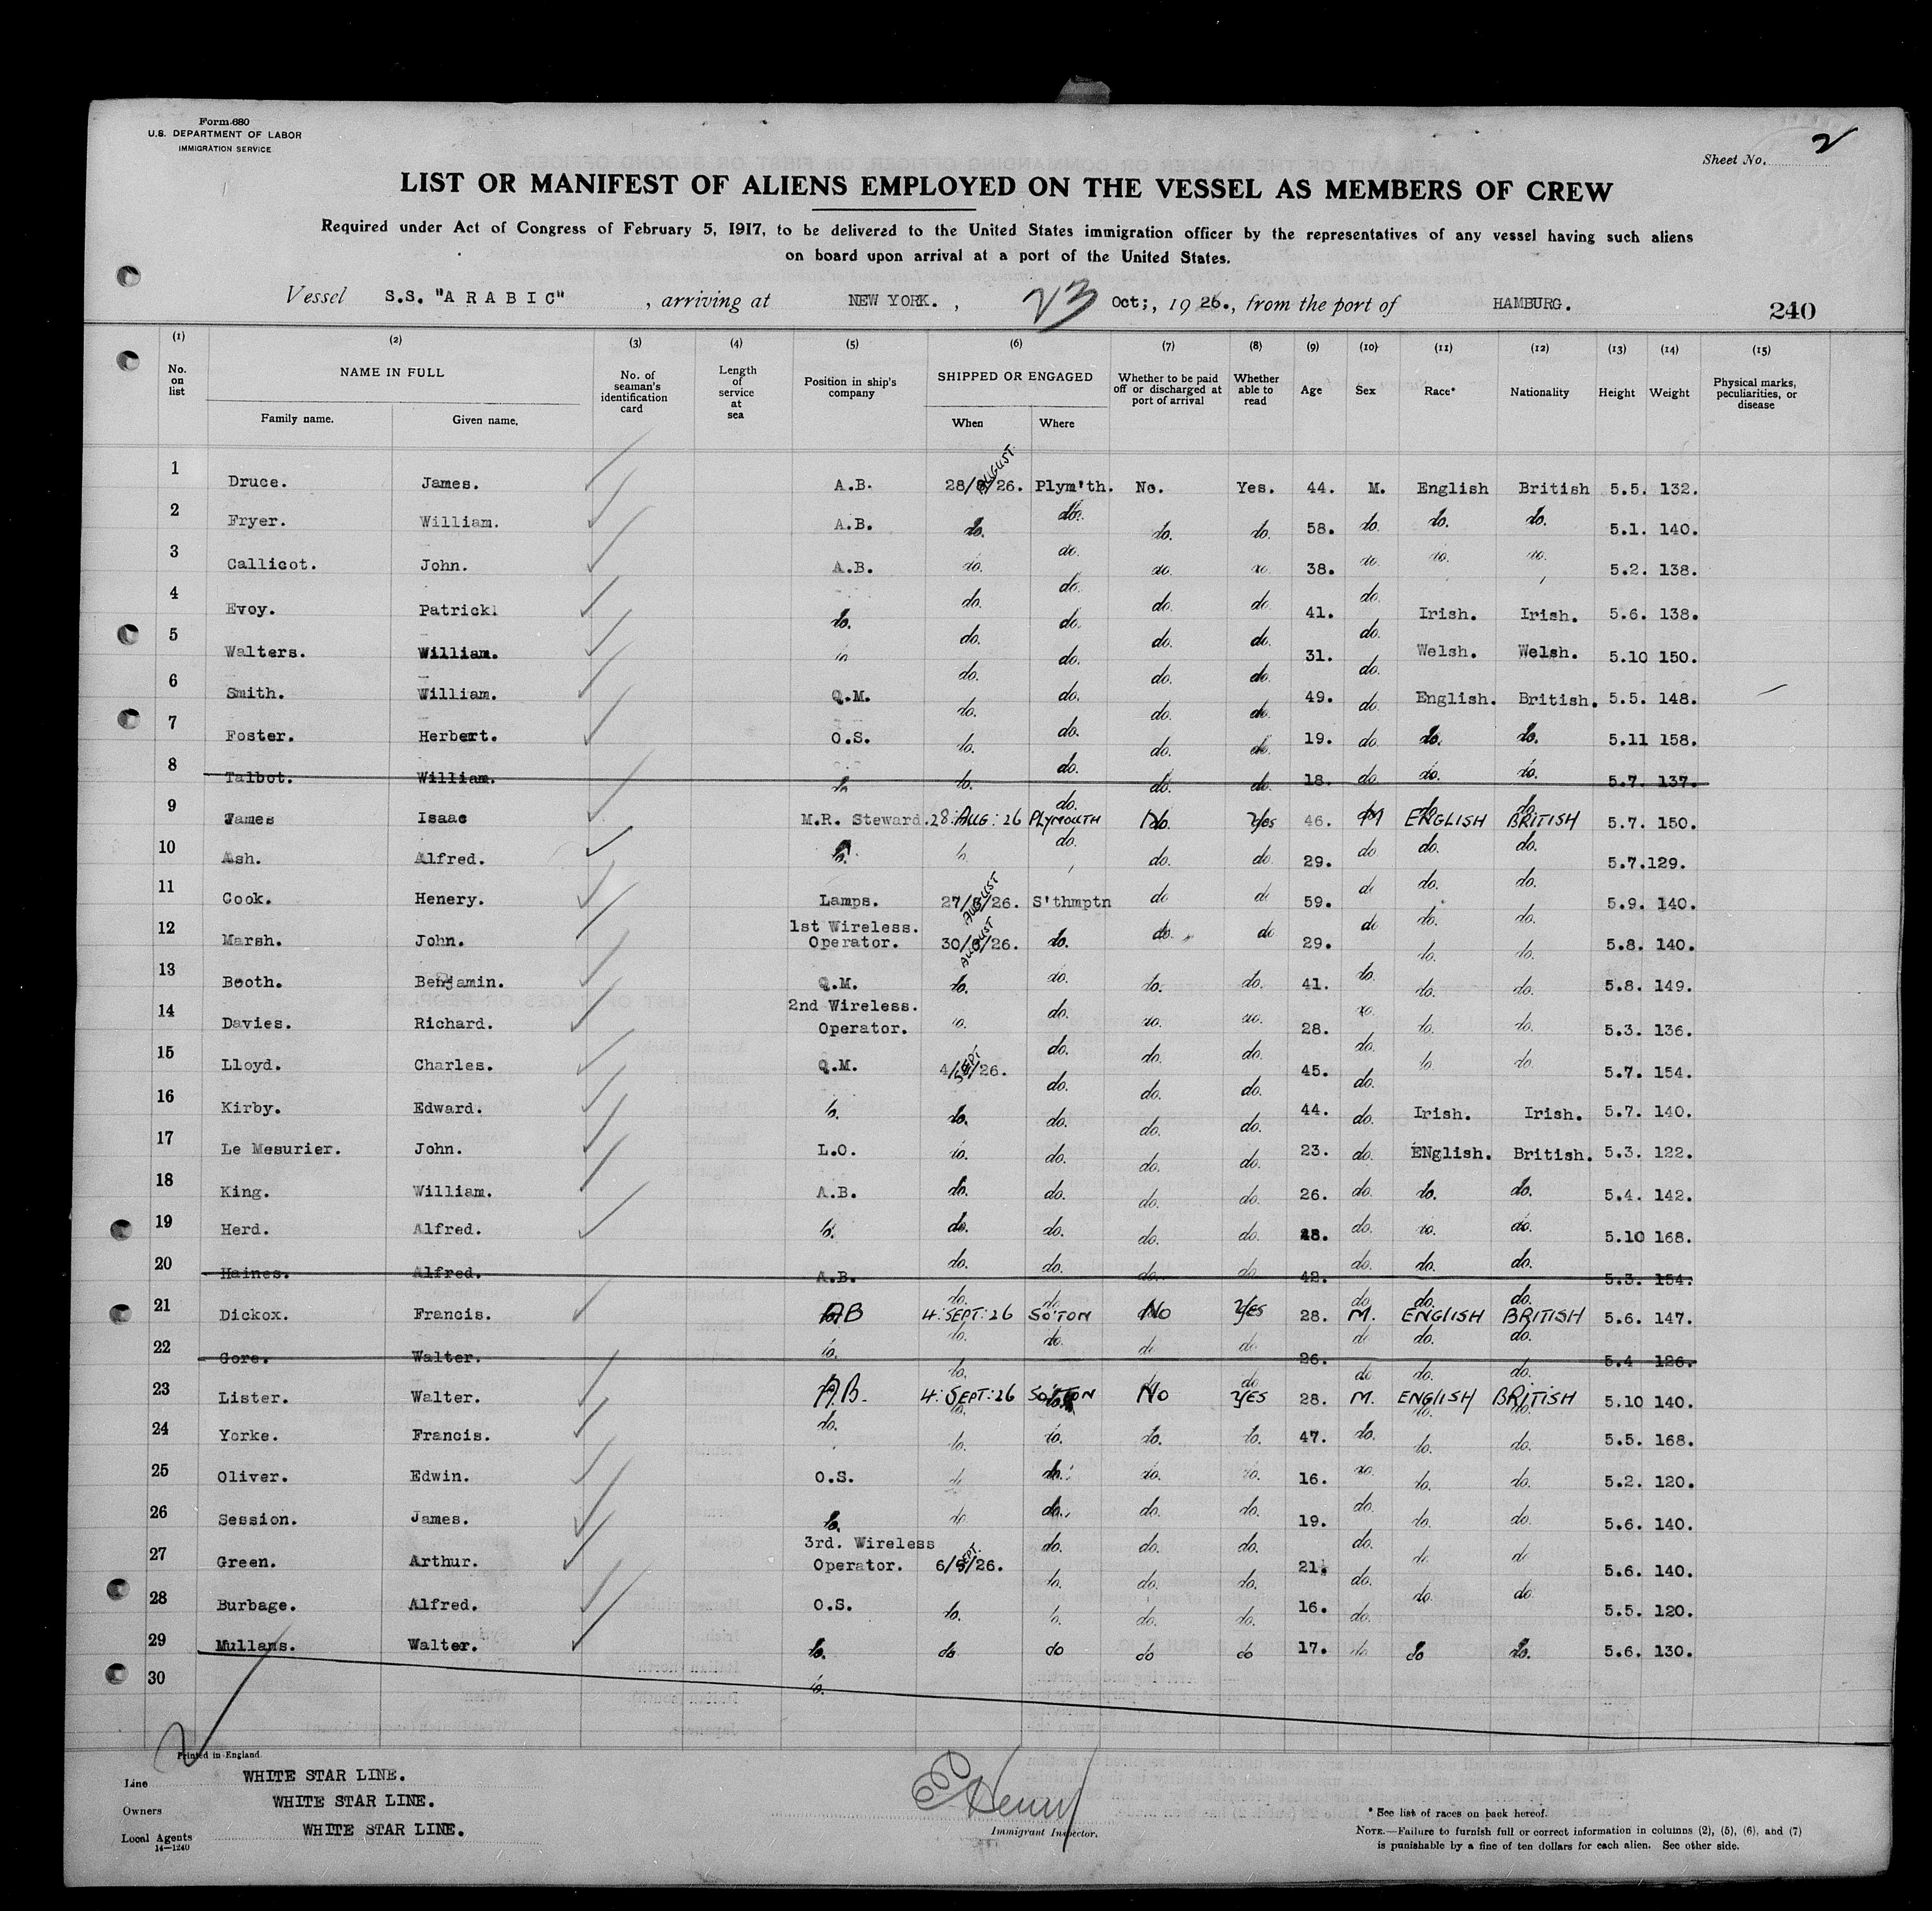 Form 680
U.S. DEPARTMENT OF LABOR
IMMIGRATION SERVICE
Sheet No. 2
LIST OR MANIFEST OF ALIENS EMPLOYED ON THE VESSEL AS MEMBERS OF CREW
Required under Act of Congress of February 5, 1917, to be delivered to the United States immigration officer by the representatives of any vessel having such aliens
on board upon arrival at a port of the United States.
Vessel S.S. "ARABIC", arriving at NEW YORK., 23 Oct;, 1926., from the port of HAMBURG. 240
(1) (2) (3) (4) (5) (6) (7) (8) (9) (10) (11) (12) (13) (14) (15)
No. on list NAME IN FULL Family name. Given name. No. of seaman's identification card Length of service at sea Position in ship's company SHIPPED OR ENGAGED When Where Whether to be paid off or discharged at port of arrival Whether able to read Age Sex Race* Nationality Height Weight Physical marks, peculiarities, or disease
1 Druce. James. A.B. 28/AUGUST/26. Plym'th. No. Yes. 44. M. English British 5.5. 132.
2 Fryer. William. A.B. do. do. do. do. 58. do. do. do. 5.1. 140.
3 Callicot. John. A.B. do. do. do. do. 38. do. do. do. 5.2. 138.
4 Evoy. Patrick. do. do. do. do. do. 41. do. Irish. Irish. 5.6. 138.
5 Walters. William. do. do. do. do. do. 31. do. Welsh. Welsh. 5.10 150.
6 Smith. William. Q.M. do. do. do. do. 49. do. English. British. 5.5. 148.
7 Foster. Herbert. O.S. do. do. do. do. 19. do. do. do. 5.11 158.
8 Talbot. William. do. do. do. do. do. 18. do. do. do. 5.7. 137.
9 James Isaac M.R. Steward. 28:AUG:26 PLYMOUTH No. Yes 46. M ENGLISH BRITISH 5.7. 150.
10 Ash. Alfred. do. do. do. do. do 29. do do. do. 5.7.129.
11 Cook. Henery. Lamps. 27/AUGUST/26. S'thmptn do do 59. do do. do. 5.9. 140.
12 Marsh. John. 1st Wireless. Operator. 30/AUGUST/26. do. do. do 29. do do. do. 5.8. 140.
13 Booth. Benjamin. Q.M. do. do. do. do. 41. do. do. do. 5.8. 149.
14 Davies. Richard. 2nd Wireless. Operator. do. do. do. do. 28. do. do. do. 5.3. 136.
15 Lloyd. Charles. Q.M. 4/SEPT/26. do. do. do. 45. do. do. do. 5.7. 154.
16 Kirby. Edward. do. do. do. do. do. 44. do. Irish. Irish. 5.7. 140.
17 Le Mesurier. John. L.O. do. do. do. do. 23. do. ENglish. British. 5.3. 122.
18 King. William. A.B. do. do. do. do. 26. do. do. do. 5.4. 142.
19 Herd. Alfred. do. do. do. do. do. do. do. do. 5.10 168.
20 Haines. Alfred. A.B. do. do. do. do. 42. do. do. do. 5.3. 154.
21 Dickox. Francis. AB 4:SEPT:26 SO'TON No Yes 28. M. ENGLISH BRITISH 5.6. 147.
22 Gore. Walter. do. do. do. do do 26. do do. do. 5.4 126.
23 Lister. Walter. A.B. 4:SEPT:26 SO'TON No YES 28. M. ENGLISH BRITISH 5.10 140.
24 Yorke. Francis. do. do. do. do. do. 47. do. do. do. 5.5. 168.
25 Oliver. Edwin. O.S. do do. do. do. 16. do. do. do. 5.2. 120.
26 Session. James. do. do. do. do. do. 19. do. do. do. 5.6. 140.
27 Green. Arthur. 3rd. Wireless Operator. 6/SEPT./26. do. do. do. 21. do. do. do 5.6. 140.
28 Burbage. Alfred. O.S. do. do. do. do. 16. do. do. do. 5.5. 120.
29 Mullans. Walter. do. do do do do 17. do do do. 5.6. 130.
30 do.
Printed in England
Line WHITE STAR LINE.
Owners WHITE STAR LINE.
Local Agents WHITE STAR LINE.
14—1240
Henry
Immigrant Inspector.
* See list of races on back hereof.
NOTE.—Failure to furnish full or correct information in columns (2), (5), (6), and (7)
is punishable by a fine of ten dollars for each alien. See other side.